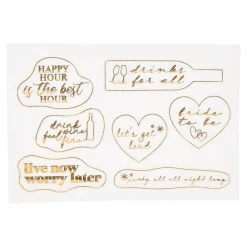 HAPPY
HOUR
is the best
HOUR
drinks
for all
drink wine
feel fine
let's get
loud
bride
to be
live now
worry later
party all all night long